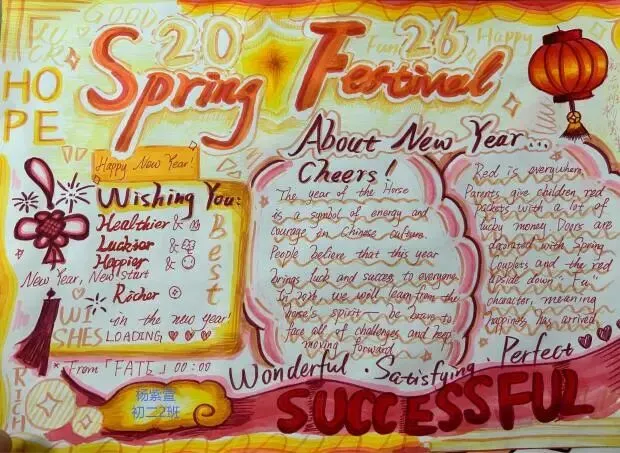 GOOD
LUCK
HOPE
20 26
Fun
Happy
Spring Festival
About New Year...
Happy New Year!
Wishing You:
Healthier &
Luckier &
Happier &
New Year, New start
Richer
Best
WISHES
in the new year!
LOADING
* From「FATE」00:00
RICH
杨紫萱
初二2班
Cheers!
The year of the Horse
is a symbol of energy and
courage in Chinese culture.
People believe that this year
brings luck and success to everyone.
In 2026, we will learn from the
horse's spirit — be brave to
face all of challenges and keep
moving forward.
Red is everywhere.
Parents give children red
packets with a lot of
lucky money. Doors are
decorated with Spring
Couplets and the red
upside down "fu"
character, meaning
happiness has arrived.
Wonderful · Satisfying · Perfect
SUCCESSFUL